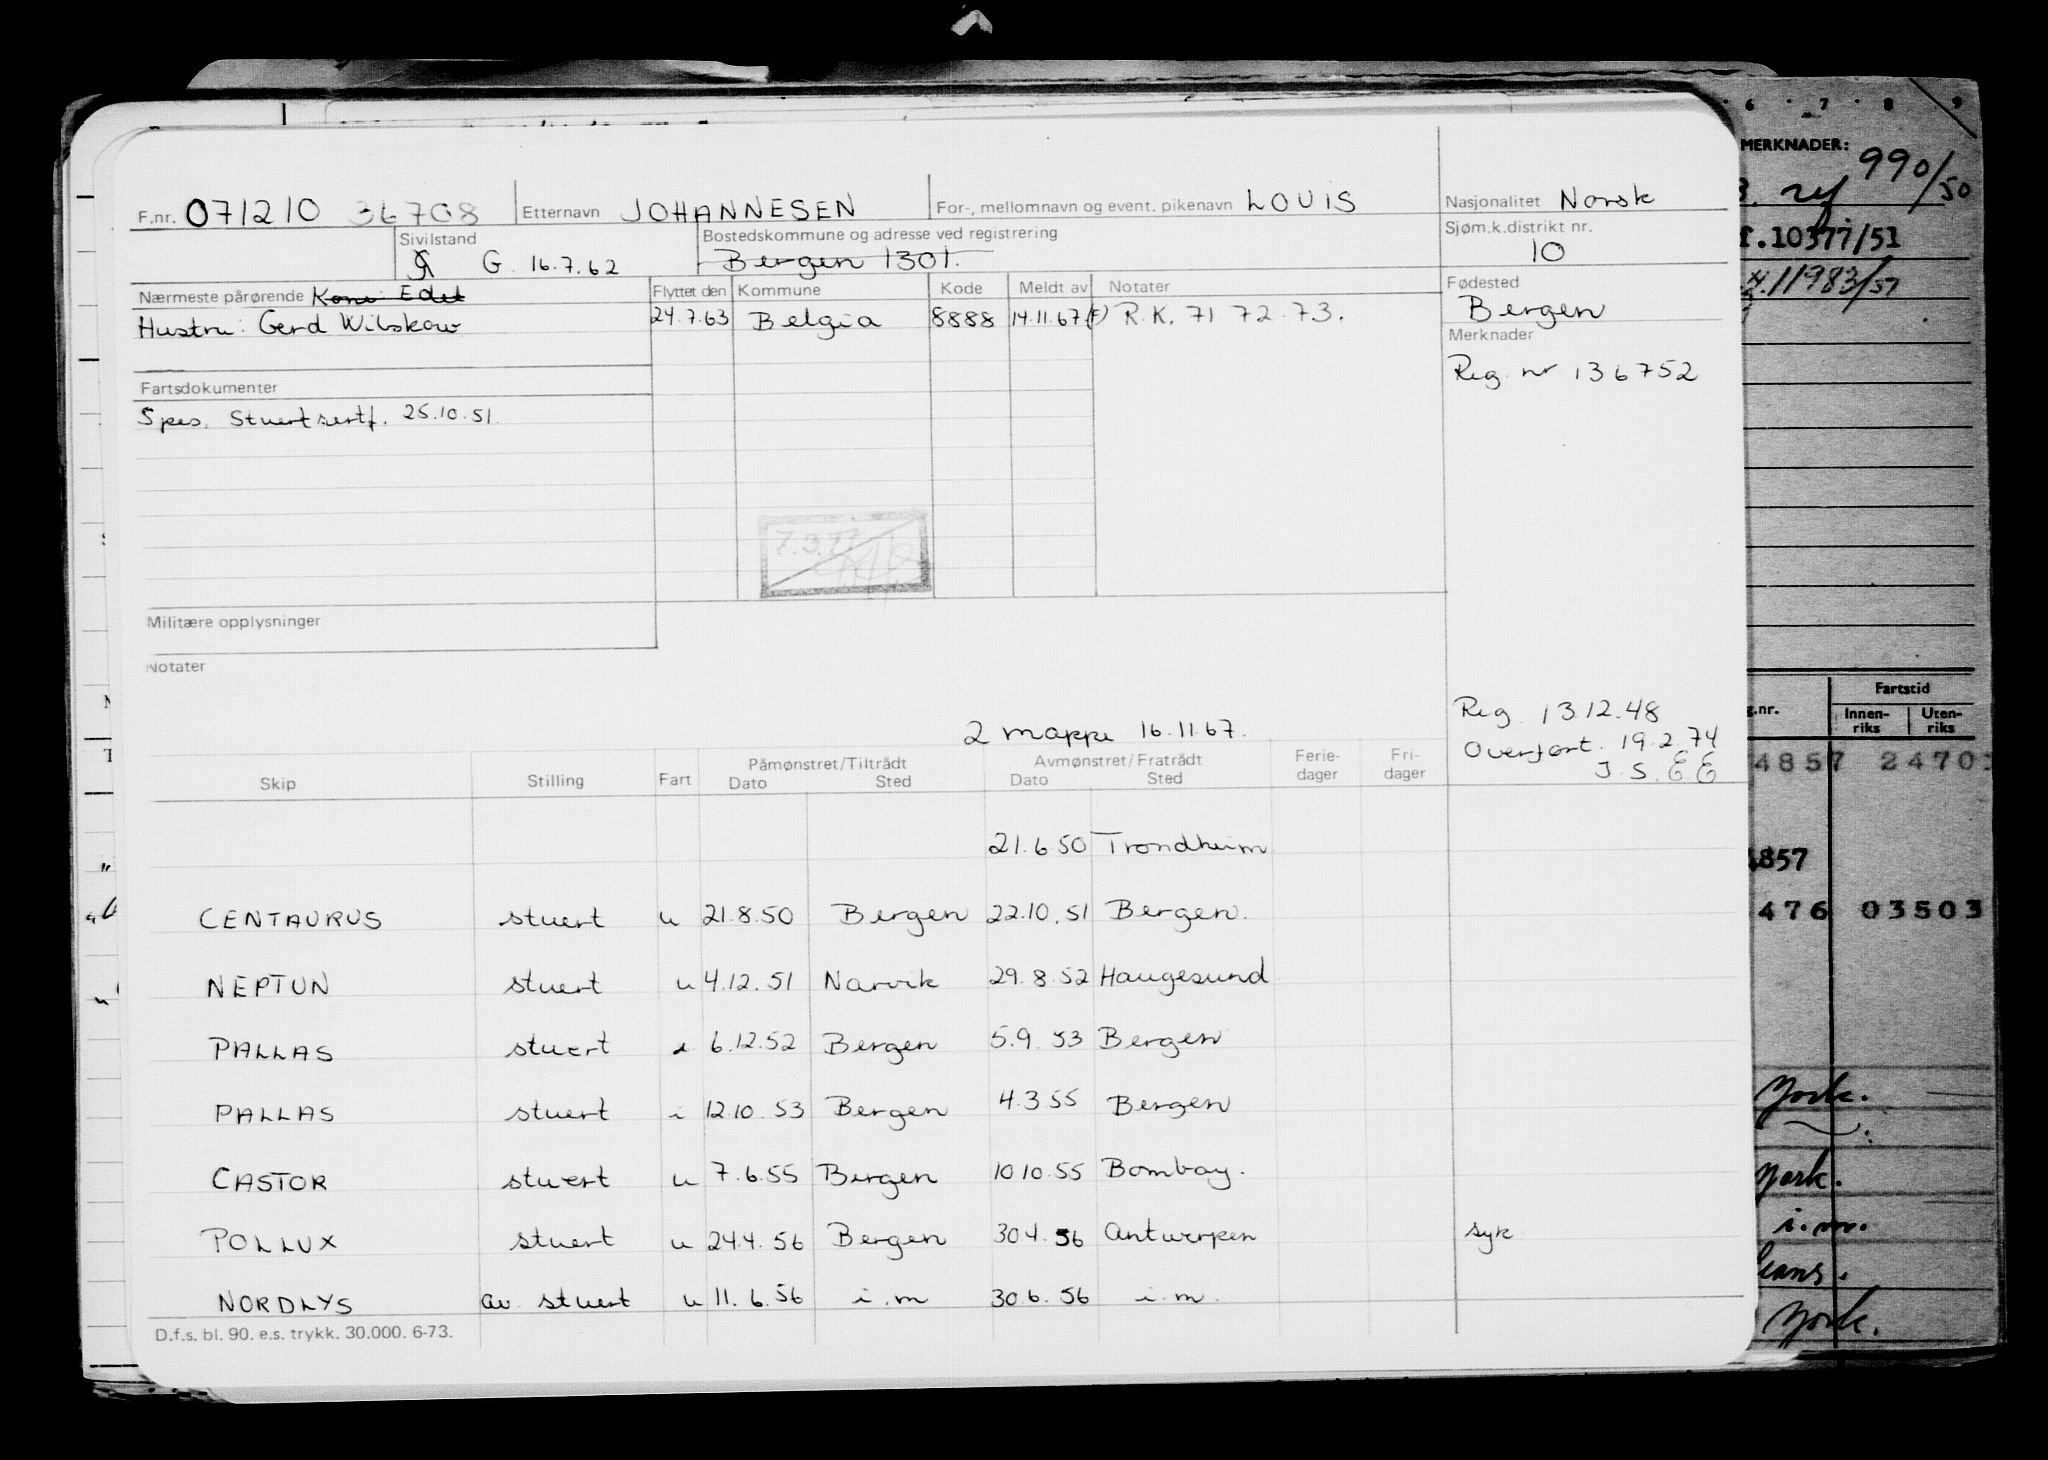 6 · 7 · 8 9
MERKNADER:
990/50
F.nr. 071210 36708 Etternavn JOHANNESEN For-, mellomnavn og event. pikenavn LOUIS Nasjonalitet Norsk
Sivilstand Bostedskommune og adresse ved registrering Sjøm.k.distrikt nr.
G. 16.7.62 Bergen 1301. 10
.10377/51
Nærmeste pårørende Flyttet den Kommune Kode Meldt av Notater Fødested
11983/57
Hustru: Gerd Wilskow 24.7.63 Belgia 8888 14.11.67 (F) R.K. 71 72 73. Bergen
Merknader
Fartsdokumenter Reg. nr 136752
Spes. Stuertsertf. 25.10.51.
Militære opplysninger
Notater
2 mappe 16.11.67.
Reg. 13.12.48
Overført. 19.2.74
J.S. EE
Fartstid
Innen-riks Uten-riks
Skip Stilling Fart Påmønstret/Tiltrådt Avmønstret/Fratrådt Ferie-dager Fri-dager
Dato Sted Dato Sted
4857 2470
21.6.50 Trondheim
4857
CENTAURUS stuert u 21.8.50 Bergen 22.10.51 Bergen.
476 03503
NEPTUN stuert u 4.12.51 Narvik 29.8.52 Haugesund
PALLAS stuert i 6.12.52 Bergen 5.9.53 Bergen
PALLAS stuert i 12.10.53 Bergen 4.3.55 Bergen
York.
CASTOR stuert u 7.6.55 Bergen 10.10.55 Bombay.
York.
POLLUX stuert u 24.4.56 Bergen 30.4.56 Antwerpen syk
i.m.
NORDLYS av. stuert u 11.6.56 i.m 30.6.56 i.m.
York.
D.f.s. bl. 90. e.s. trykk. 30.000. 6-73.